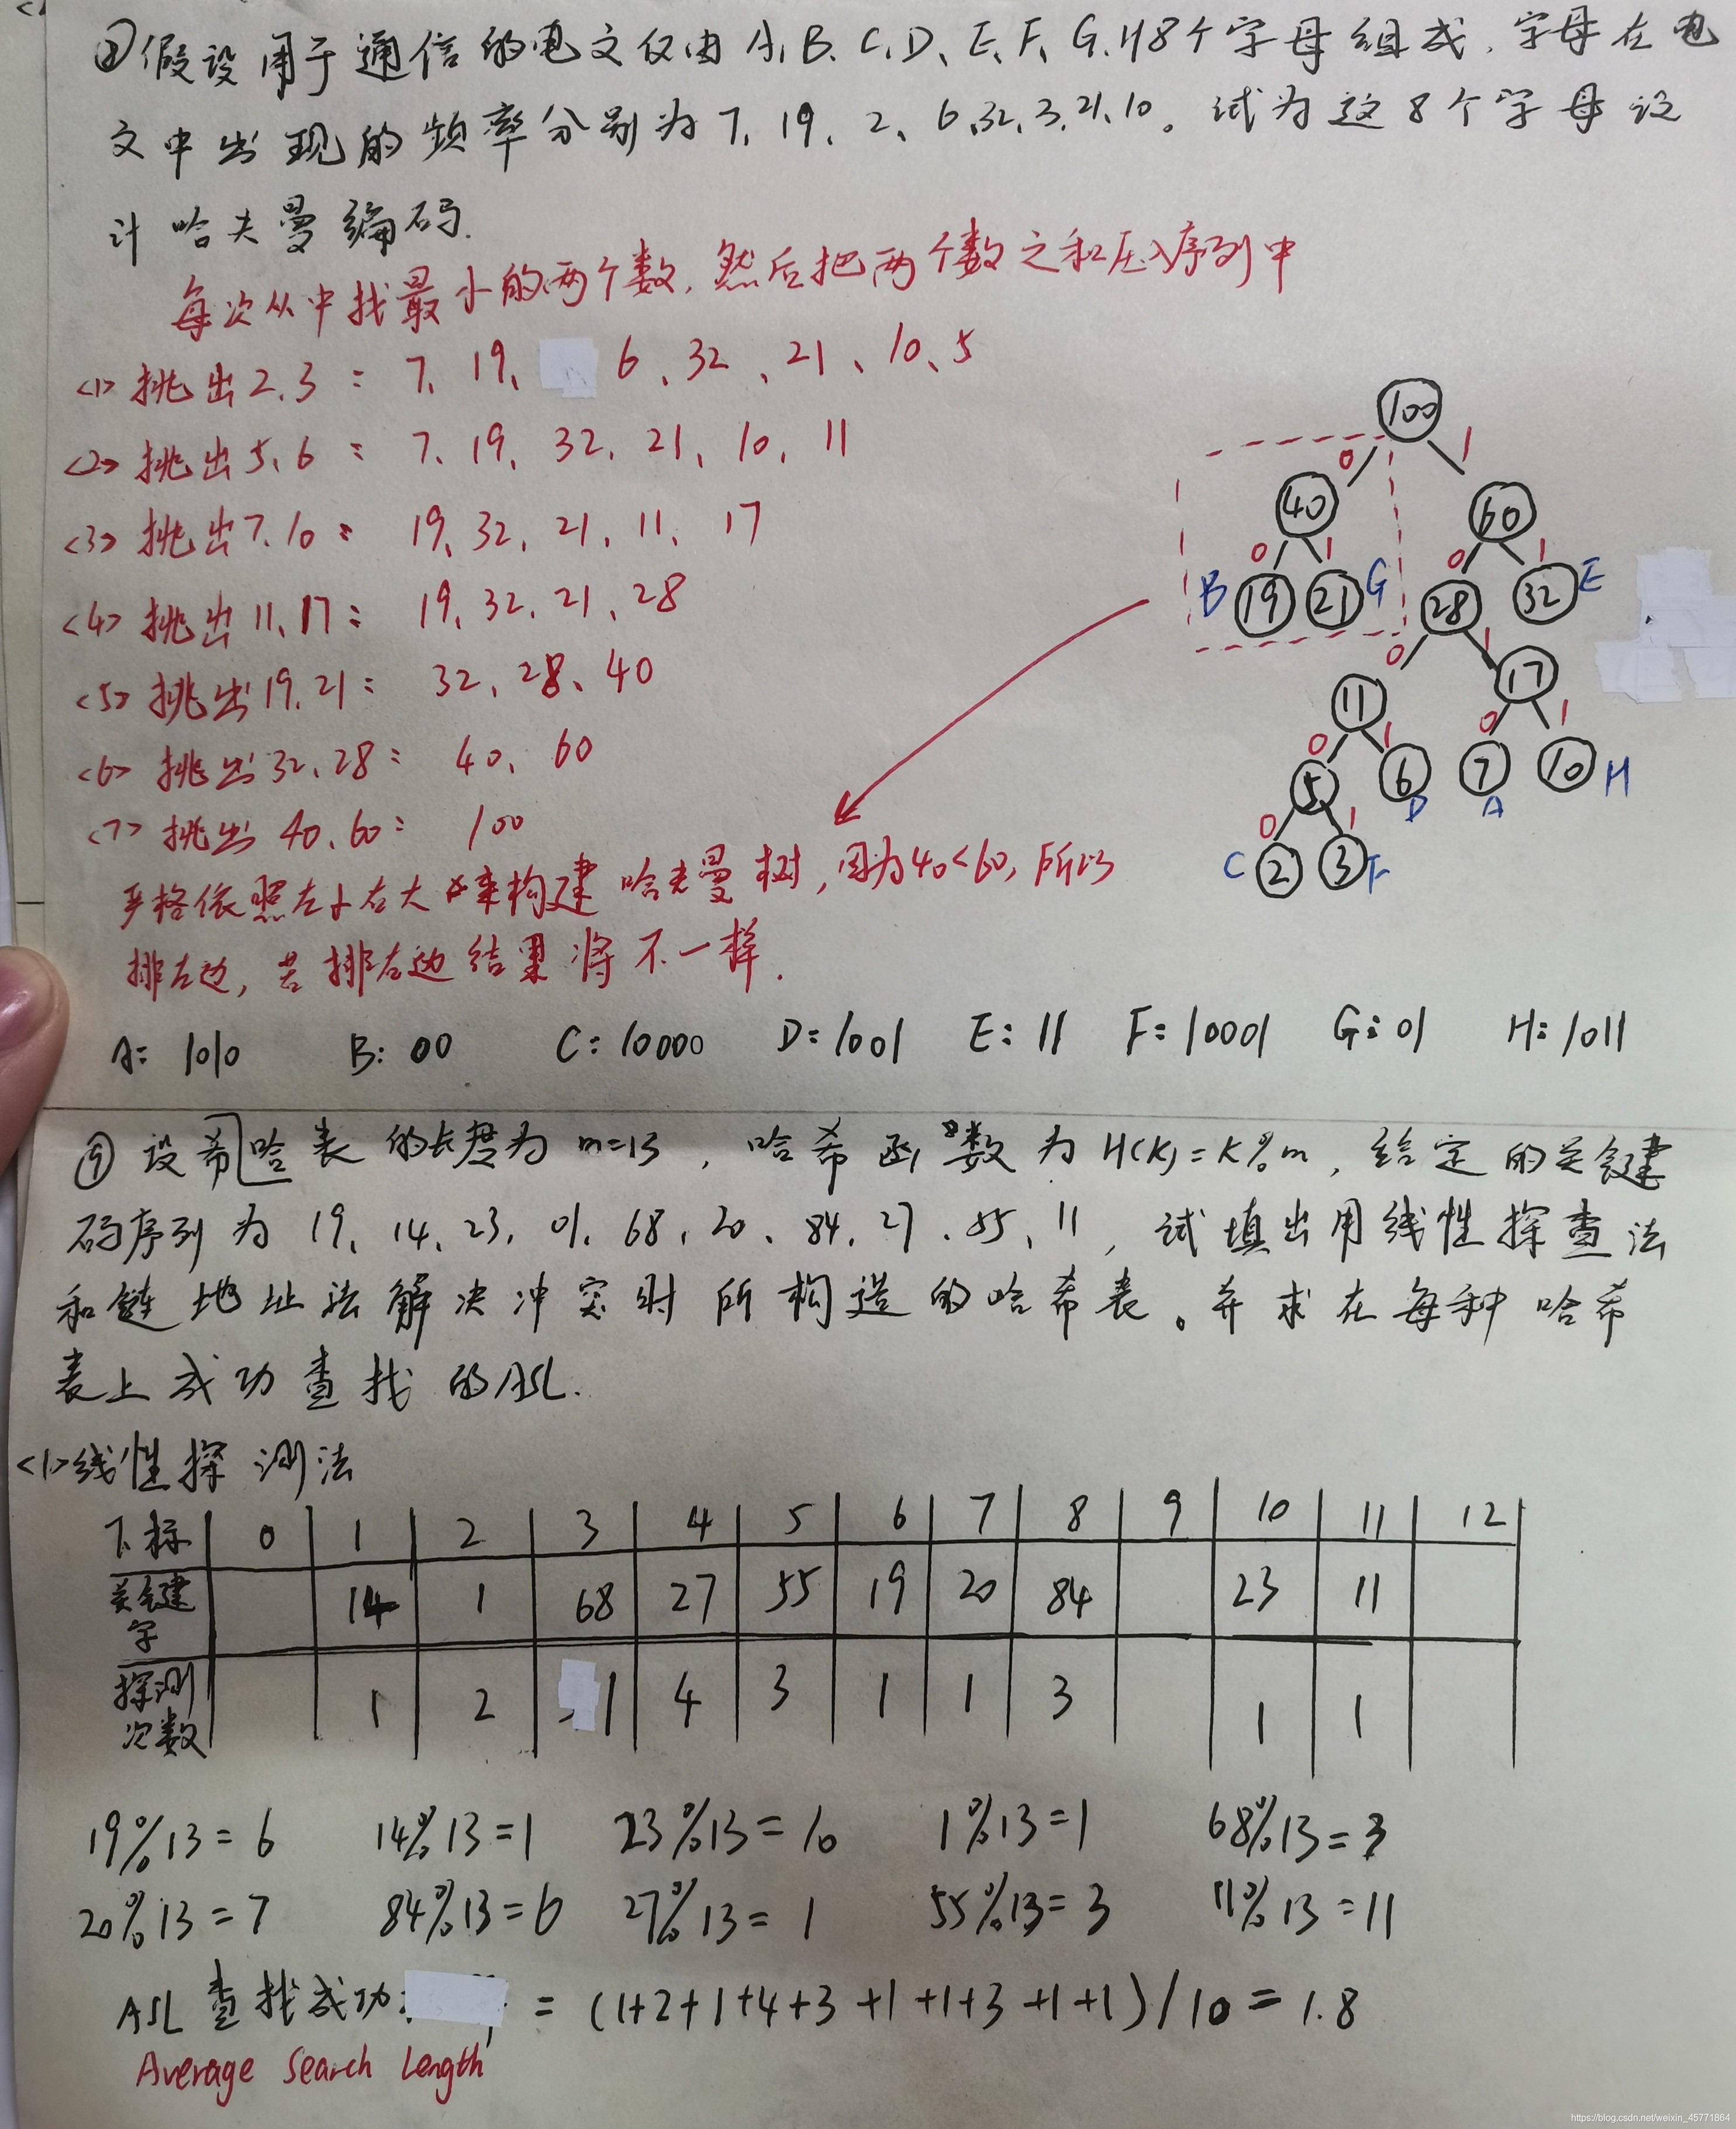 ②假设用于通信的电文仅由A、B、C、D、E、F、G、H8个字母组成,字母在电
文中出现的频率分别为7、19、2、6、32、3、21、10。试为这8个字母设
计哈夫曼编码.
每次从中找最小的两个数,然后把两个数之和压入序列中
<1> 挑出2、3: 7、19、6、32、21、10、5
<2> 挑出5、6: 7、19、32、21、10、11
<3> 挑出7、10: 19、32、21、11、17
<4> 挑出11、17: 19、32、21、28
<5> 挑出19、21: 32、28、40
<6> 挑出32、28: 40、60
<7> 挑出40、60: 100
严格依照左小右大来构建哈夫曼树,因为40<60,所以
排左边,若排右边结果将不一样.
100
0 1
40 60
0 1 0 1
B 19 21 G 28 32 E
0 1
11 17
0 1 0 1
5 6 7 10 H
D A
0 1
C 2 3 F
A: 1010 B: 00 C: 10000 D: 1001 E: 11 F: 10001 G: 01 H: 1011
④设希哈表的长度为m=13,哈希函数为H(K)=K%m,给定的关键
码序列为19、14、23、01、68、20、84、27、55、11,试填出用线性探查法
和链地址法解决冲突时所构造的哈希表。并求在每种哈希
表上成功查找的ASL.
<1>线性探测法
下标 0 1 2 3 4 5 6 7 8 9 10 11 12
关键字 14 1 68 27 55 19 20 84 23 11
探测次数 1 2 1 4 3 1 1 3 1 1
19%13=6 14%13=1 23%13=10 1%13=1 68%13=3
20%13=7 84%13=6 27%13=1 55%13=3 11%13=11
ASL查找成功: =(1+2+1+4+3+1+1+3+1+1)/10=1.8
Average Search Length
https://blog.csdn.net/weixin_45771864